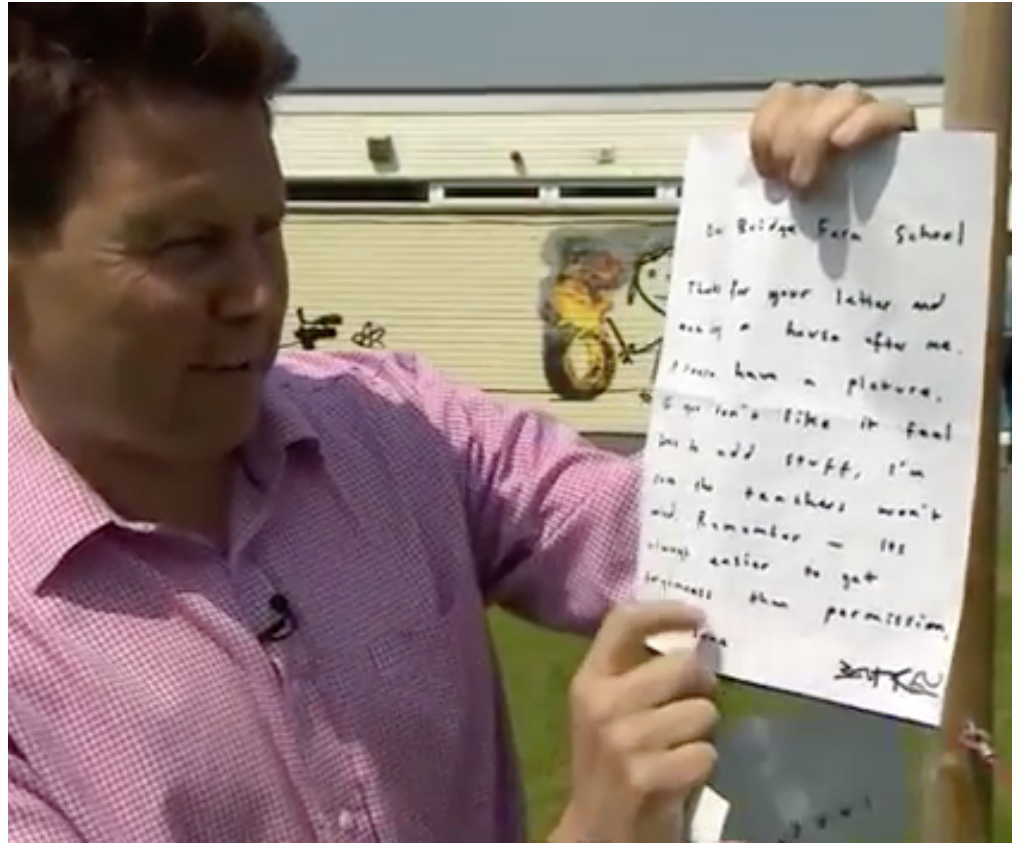 Dear Bridge Farm School
Thanks for your letter and
naming a house after me.
Please have a picture.
If you don't like it feel
free to add stuff, I'm
sure the teachers won't
mind. Remember - its
always easier to get
forgiveness than permission.
love